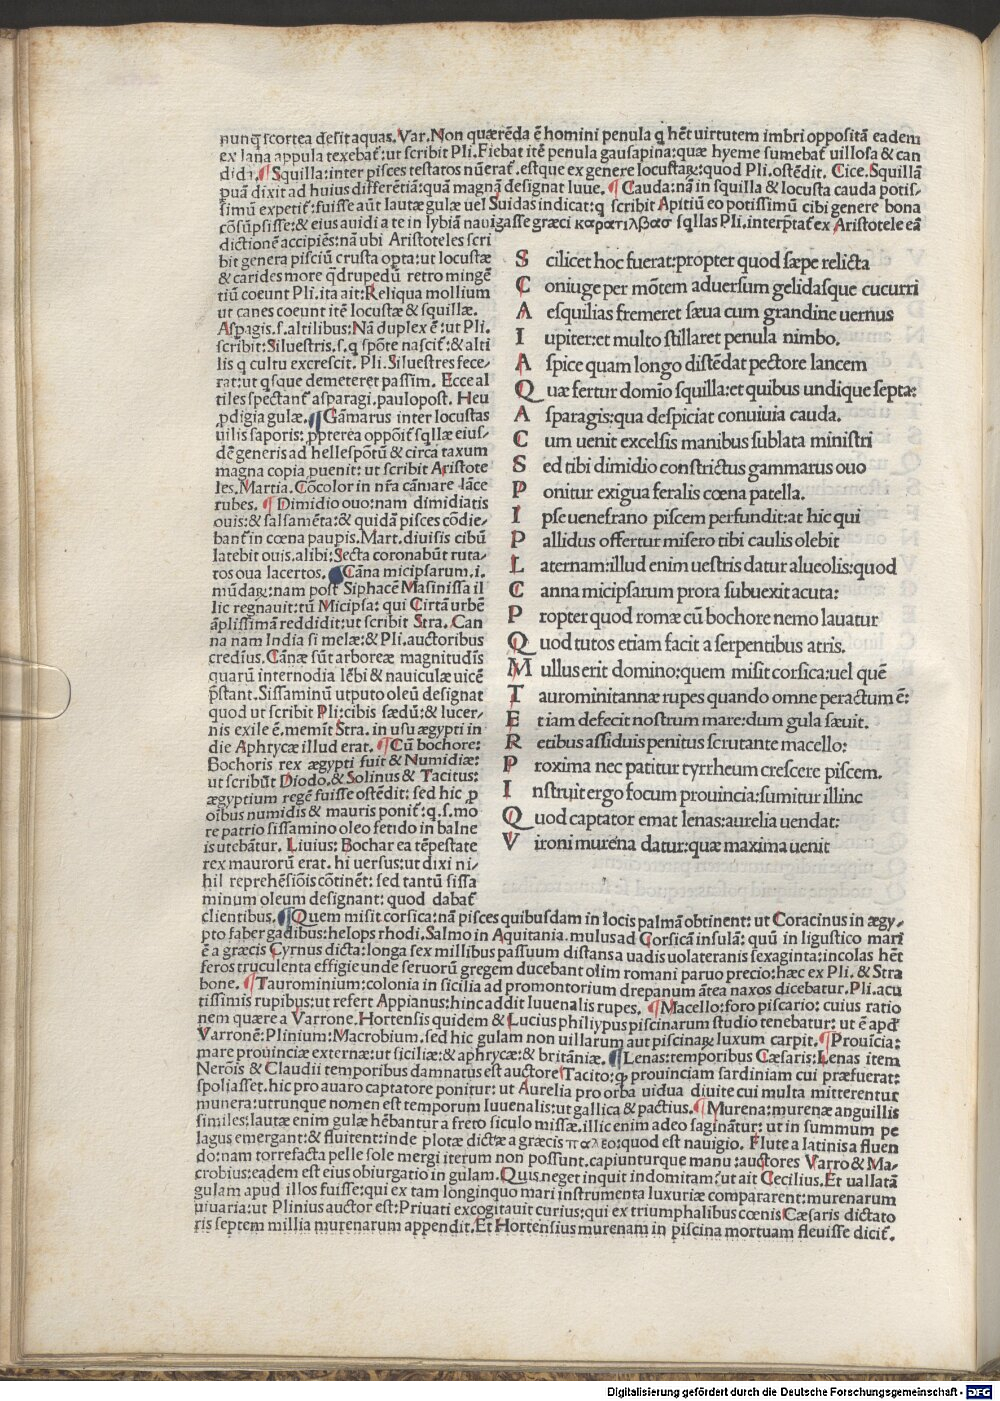 nunq̃ scortea desit aquas. Var. Non quærẽda ẽ homini penula q̃ hẽt uirtutem imbri oppositã eadem
ex lana appula texebat̃: ut scribit Pli. Fiebat itẽ penula gausapina: quæ hyeme sumebat̃ uillosa & can
dida. ¶ Squilla: inter pisces testatos nũerat̃. estque ex genere locustaꝝ: quod Pli. ostẽdit. Cice. Squillã
puã dixit ad huius differẽtiã: quã magnã designat luue. ¶ Cauda: nã in squilla & locusta cauda potis-
simũ expetit̃: fuisse aũt lautæ gulæ uel Suidas indicat: q scribit Apitiũ eo potissimũ cibi genere bona
cõsũpsisse: & eius auidi a te in lybiã nauigasse græci καρατιλβασ sqllas Pli. interp̃tat̃ ex Aristotele eã
dictionẽ accipiẽs: nã ubi Aristoteles scri
bit genera pisciũ crusta opta: ut locustæ
& carides more q̃drupedũ retro mingẽ
tiũ coeunt Pli. ita ait: Reliqua mollium
ut canes coeunt itẽ locustæ & squillæ.
Aspagis. s. altilibus: Nã duplex ẽ: ut Pli.
scribit: Siluestris. s. q spõte nascit̃: & alti
lis q cultu excrescit. Pli. Siluestres fece-
rat: ut qsque demeteret passim. Ecce al
tiles spectant̃ asparagi. paulopost. Heu
ꝓdigia gulæ. ¶ Gãmarus inter locustas
uilis saporis: ꝓpterea oppõit̃ sqllæ eius-
dẽ generis ad hellespõtũ & circa taxum
magna copia puenit: ut scribit Aristote
les. Martia. Cõcolor in nr̃a cãmare lãce
rubes. ¶ Dimidio ouo: nam dimidiatis
ouis: & salsamẽta: & quidã pisces cõdie-
bant̃ in cœna paupis. Mart. diuisis cibũ
latebit ouis. alibi: Secta coronabũt ruta-
tos oua lacertos. ¶ Cãna micipsarum. i.
mũdaꝝ: nam post Siphacẽ Masinissa il
lic regnauit: tũ Micipsa: qui Cirtã urbẽ
ãplissimã reddidit: ut scribit Stra. Can
na nam India si melæ: & Pli. auctoribus
credius. Cãnæ sũt arboreæ magnitudĩs
quarũ internodia lẽbi & nauiculæ uicẽ
p̃stant. Sissaminũ ut puto oleũ designat
quod ut scribit Pli: cibis fædũ: & lucer-
nis exile ẽ. memĩt Stra. in usu ægypti in
die Aphrycæ illud erat. ¶ Cũ bochore:
Bochoris rex ægypti fuit & Numidiæ:
ut scribũt Diodo. & Solinus & Tacitus:
ægyptium regẽ fuisse ostẽdit: sed hic ꝓ
oibus numidis & mauris ponit̃: q. s. mo
re patrio sissamino oleo fetido in balne
is utebãtur. Liuius: Bochar ea tẽpestate
rex maurorũ erat. hi uersus: ut dixi ni-
hil reprehẽsiõis cõtinẽt: sed tantũ sissa
minum oleum designant: quod dabat̃
S cilicet hoc fuerat: propter quod sæpe relicta
C oniuge per mõtem aduersum gelidasque cucurri
A esquilias fremeret sæua cum grandine uernus
I upiter: et multo stillaret penula nimbo.
A spice quam longo distẽdat pectore lancem
Q uæ fertur domĩo squilla: et quibus undique septa:
A sparagis: qua despiciat conuiuia cauda.
C um uenit excelsis manibus sublata ministri
S ed tibi dimidio constrictus gammarus ouo
P onitur exigua feralis cœna patella.
I pse uenefrano piscem perfundit: at hic qui
P allidus offertur misero tibi caulis olebit
L aternam: illud enim uestris datur alueolis: quod
C anna micipsarum prora subuexit acuta:
P ropter quod romæ cũ bochore nemo lauatur
Q uod tutos etiam facit a serpentibus atris.
M ullus erit domino: quem misit corsica: uel quẽ
T aurominitannæ rupes quando omne peractum ẽ:
E t iam defecit nostrum mare: dum gula sæuit.
R etibus assiduis penitus scrutante macello:
P roxima nec patitur tyrrheum crescere piscem.
I nstruit ergo focum prouincia: sumitur illinc
Q uod captator emat lenas: aurelia uendat:
V ironi murena datur: quæ maxima uenit
clientibus. ¶ Quem misit corsica: nã pisces quibusdam in locis palmã obtinent: ut Coracinus in ægy-
pto faber gadibus: helops rhodi. Salmo in Aquitania. mulus ad Corsicã insulã: quũ in ligustico mari
ẽ a græcis Cyrnus dicta: longa sex millibus passuum distans a uadis uolateranis sexaginta: incolas hẽt
feros truculenta effigie unde seruorũ gregem ducebant olim romani paruo precio: hæc ex Pli. & Stra
bone. ¶ Taurominium: colonia in sicilia ad promontorium drepanum ãtea naxos dicebatur. Pli. acu
tissimis rupibus: ut refert Appianus: hinc addit Iuuenalis rupes. ¶ Macello: foro piscario: cuius ratio
nem quære a Varrone. Hortensis quidem & Lucius philyppus piscinarum studio tenebatur: ut ẽ apđ
Varronẽ: Plinium: Macrobium. sed hic gulam non uillarum aut piscinaꝝ luxum carpit. ¶ Prouĩcia:
mare prouinciæ externæ: ut siciliæ: & aphrycæ: & britãniæ. ¶ Lenas: temporibus Cæsaris: Lenas item
Nerois & Claudii temporibus damnatus est auctore Tacito: ꝙ prouinciam sardiniam cui præfuerat:
spoliasset. hic pro auaro captatore ponitur: ut Aurelia pro orba uidua diuite cui multa mitterentur
munera: utrunque nomen est temporum Iuuenalis: ut gallica & pactius. ¶ Murena: murenæ anguillis
similes: lautæ enim gulæ hẽbantur a freto siculo missæ. illic enim adeo saginãtur: ut in summum pe
lagus emergant: & fluitent: inde plotæ dictæ a græcis πλλεο: quod est nauigio. Flute a latinis a fluen
do: nam torrefacta pelle sole mergi iterum non possunt. capiunturque manu: auctores Varro & Ma-
crobius: eadem est eius obiurgatio in gulam. Quis neget inquit indomitam? ut ait Cecilius. Et uallatã
gulam apud illos fuisse: qui ex tam longinquo mari instrumenta luxuriæ compararent: murenarum
uiuaria: ut Plinius auctor est: Priuati excogitauit curius: qui ex triumphalibus cœnis Cæsaris dictato
ris septem millia murenarum appendit. Et Hortensius murenam in piscina mortuam fleuisse dicit̃.
Digitalisierung gefördert durch die Deutsche Forschungsgemeinschaft - DFG